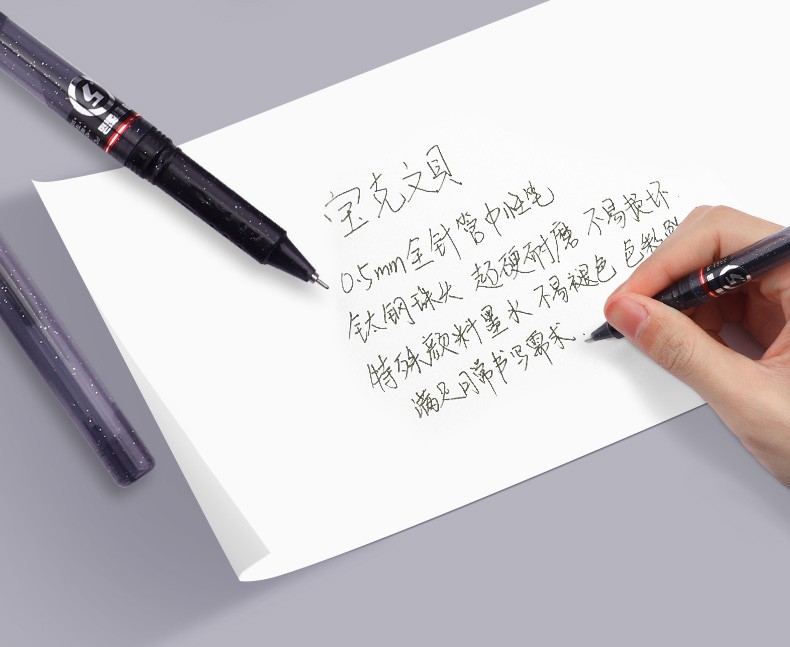 宝克文具
0.5mm全针管中性笔
钛钢珠头 超硬耐磨 不易损坏
特殊颜料墨水 不易褪色 色彩
满足日常书写需求.